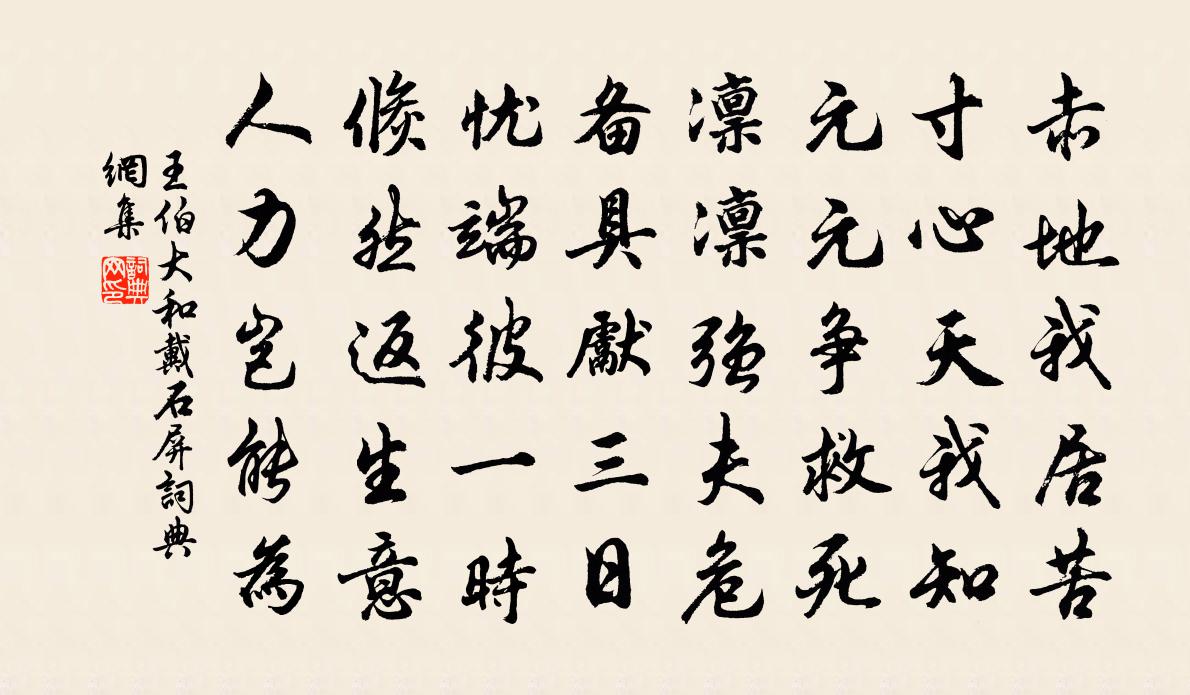 赤地我居苦
寸心天我知
元元争救死
凛凛強夫危
备具獻三日
忧端彼一時
倏然返生意
人力岂能為
王伯大和戴石屏詞典
網集
詞典
网印